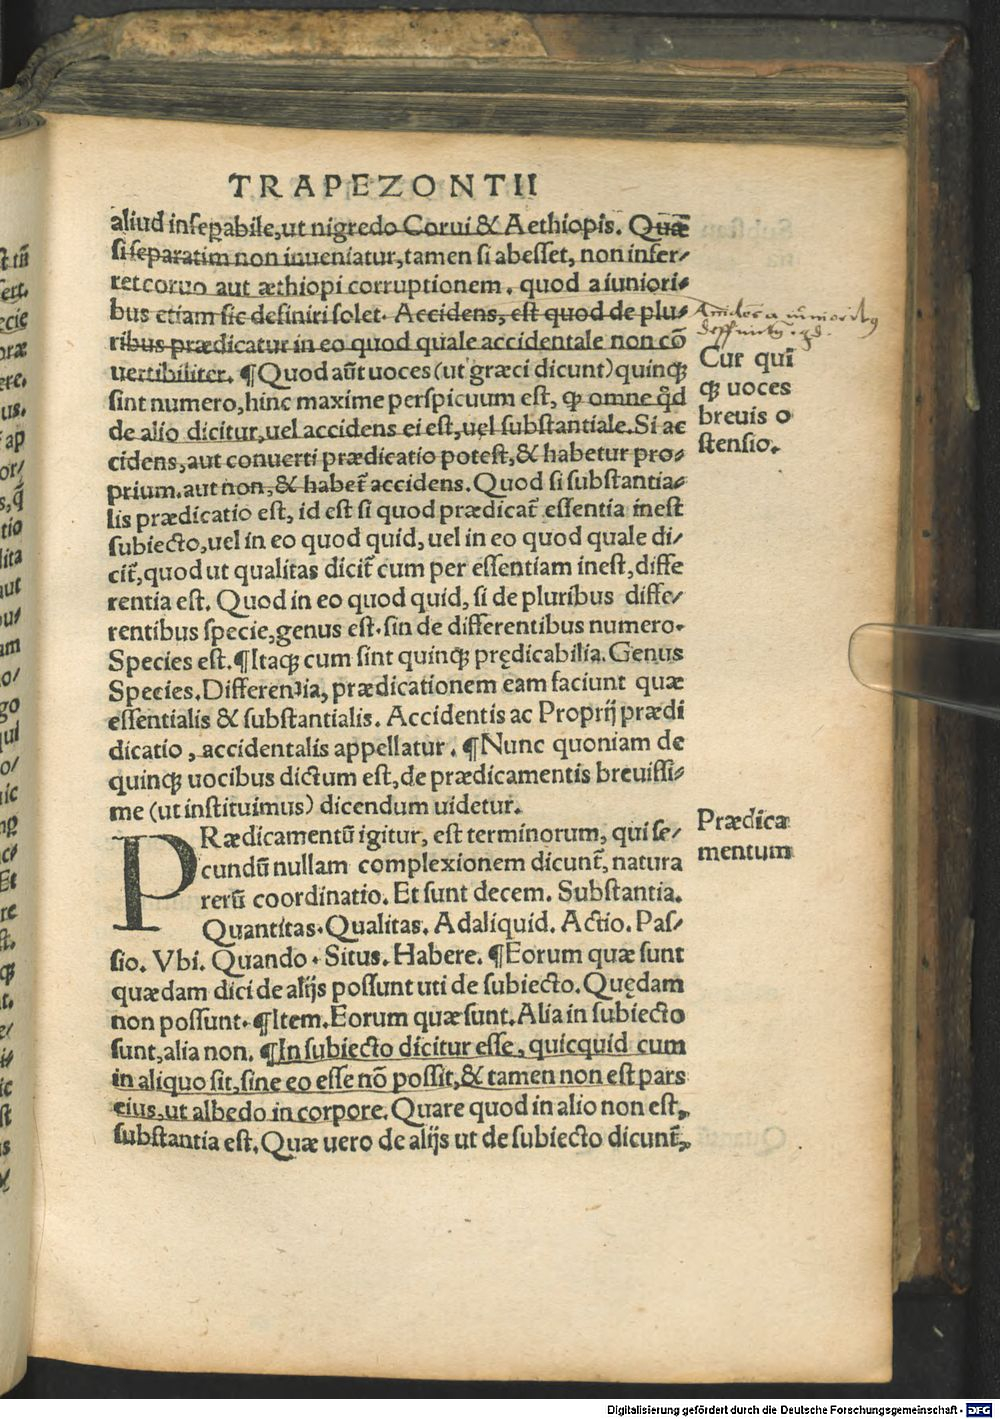 TRAPEZONTII
aliud inſeꝑabile,ut nigredo Corui & Aethiopis. Quæ
ſi ſeparatim non inueniatur,tamen ſi abeſſet, non infer⸗
ret coruo aut æthiopi corruptionem. quod a iuniori⸗
bus etiam ſic definiri ſolet. Accidens, eſt quod de plu⸗
ribus prædicatur in eo quod quale accidentale non cō
uertibiliter. ¶Quod aūt uoces (ut græci dicunt) quinqꝫ
ſint numero, hinc maxime perſpicuum eſt, ꝙ omne qd̄
de alio dicitur,uel accidens ei eſt,uel ſubſtantiale.Si ac
cidens,aut conuerti prædicatio poteſt,& habetur pro⸗
prium.aut non,& habet̄ accidens.Quod ſi ſubſtantia⸗
lis prædicatio eſt, id eſt ſi quod prædicat̄ eſſentia ineſt
ſubiecto,uel in eo quod quid, uel in eo quod quale di/
cit̄,quod ut qualitas dicit̄ cum per eſſentiam ineſt,diffe
rentia eſt. Quod in eo quod quid, ſi de pluribus diffe/
rentibus ſpecie,genus eſt.ſin de differentibus numero.
Species eſt.¶Itaqꝫ cum ſint quinqꝫ prędicabilia.Genus
Species.Differentia, prædicationem eam faciunt quæ
eſſentialis & ſubſtantialis. Accidentis ac Proprij prædi
dicatio, accidentalis appellatur. ¶Nunc quoniam de
quinqꝫ uocibus dictum eſt,de prædicamentis breuiſſi⸗
me (ut inſtituimus) dicendum uidetur.
PRædicamentū igitur, eſt terminorum, qui ſe/
cundū nullam complexionem dicunt̄, natura
rerū coordinatio. Et ſunt decem. Subſtantia.
Quantitas.Qualitas. Adaliquid. Actio. Paſ/
ſio. Vbi. Quando. Situs. Habere. ¶Eorum quæ ſunt
quædam dici de alijs poſſunt uti de ſubiecto.Quędam
non poſſunt.¶Item.Eorum quæ ſunt.Alia in ſubiecto
ſunt,alia non. ¶In ſubiecto dicitur eſſe, quicquid cum
in aliquo ſit,ſine eo eſſe nō poſſit,& tamen non eſt pars
eius,ut albedo in corpore. Quare quod in alio non eſt,
ſubſtantia eſt. Quæ uero de alijs ut de ſubiecto dicunt̄,
a iunioribus
Cur quī
qꝫ uoces
breuis o
ſtenſio.
Prædica
mentum
Digitalisierung gefördert durch die Deutsche Forschungsgemeinschaft - DFG